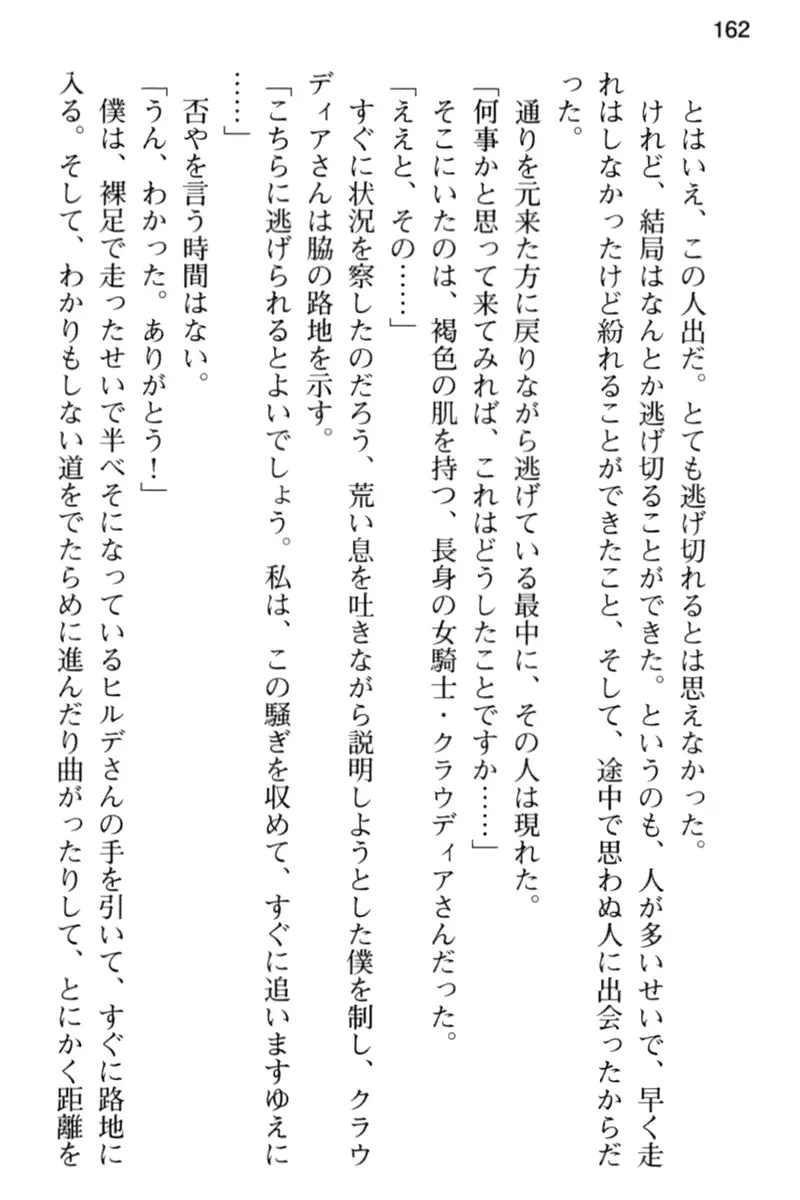 162
とはいえ、この人出だ。とても逃げ切れるとは思えなかった。
けれど、結局はなんとか逃げ切ることができた。というのも、人が多いせいで、早く走
れはしなかったけど紛れることができたこと、そして、途中で思わぬ人に出会ったからだ
った。
通りを元来た方に戻りながら逃げている最中に、その人は現れた。
「何事かと思って来てみれば、これはどうしたことですか……」
そこにいたのは、褐色の肌を持つ、長身の女騎士・クラウディアさんだった。
「ええと、その……」
すぐに状況を察したのだろう、荒い息を吐きながら説明しようとした僕を制し、クラウ
ディアさんは脇の路地を示す。
「こちらに逃げられるとよいでしょう。私は、この騒ぎを収めて、すぐに追いますゆえに
……」
否やを言う時間はない。
「うん、わかった。ありがとう！」
僕は、裸足で走ったせいで半べそになっているヒルデさんの手を引いて、すぐに路地に
入る。そして、わかりもしない道をでたらめに進んだり曲がったりして、とにかく距離を